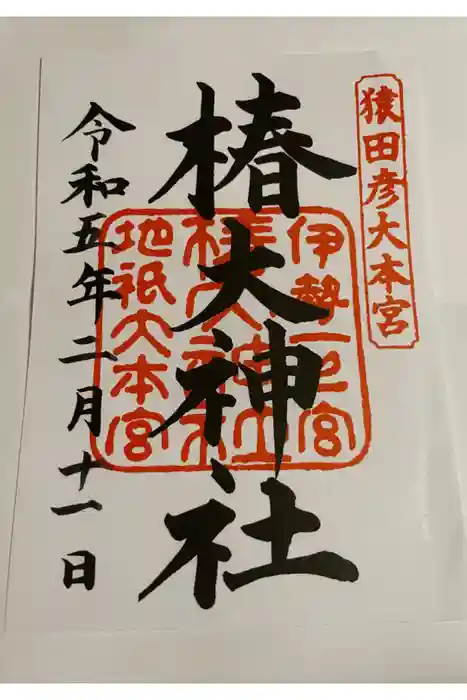 猿田彦大本宮
椿大神社
伊勢一之宮
椿大神社
地祇大本宮
令和五年二月十一日